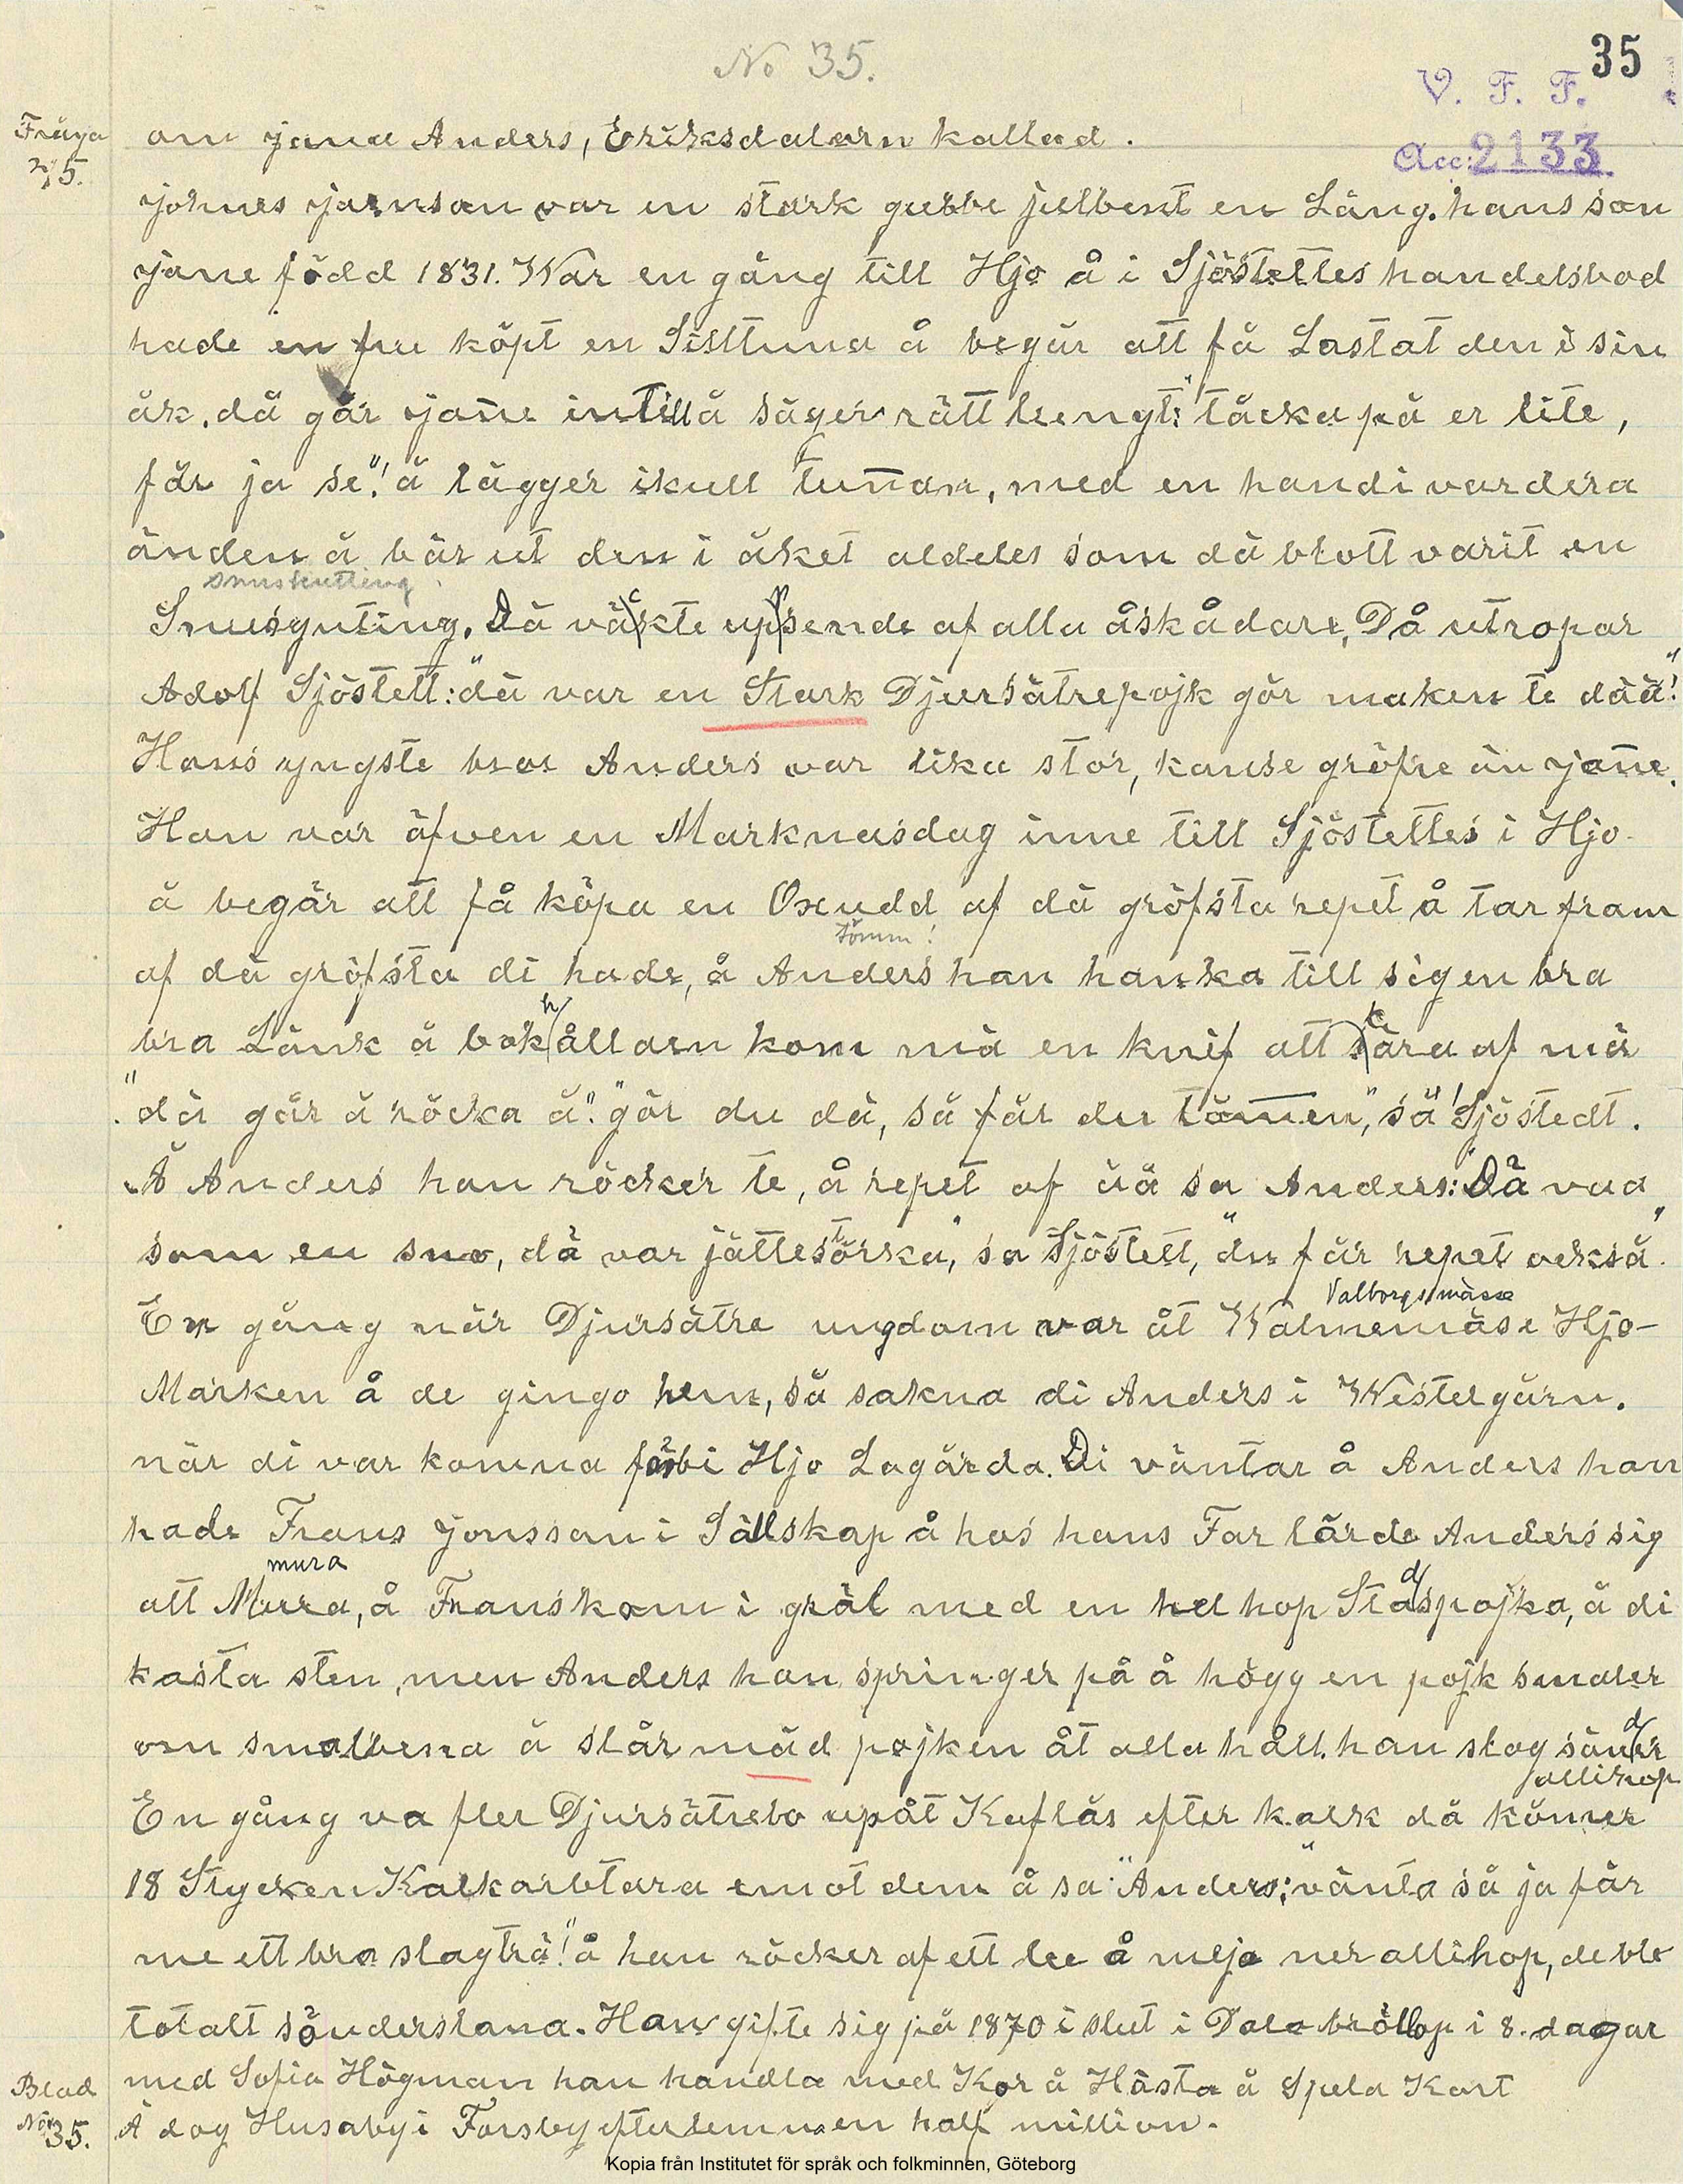 No 35.
35
V. F. F.
Acc: 2133.
Fråga
35.
om jane Anders, Eriksdalarn kallad.
johnes jaensson var en stark gubbe julbent en Lång. hans son
jane född 1831. War en gång till Hjo å i Sjöstettes handelsbod
hade en fru köpt en Silltuna å begär att få Lastat den i sin
åk. då går jane intill å säger rätt lungt: "täcka på er lite,
får ja se"! å lägger ikull tunan, med en hand i vardera
änden å bär ut den i åket aldeles som dä blott varit en
snuskutting
Snusguting. Dä väckte uppsende af alla åskådare, Då utropar
Adolf Sjöstett: "dä var en Stark Djursätrepojk gör maken te dää"!
Hans yngste bror Anders var lika stor, kanse gröfre än jane.
Han var äfven en Marknasdag inne till Sjöstettes i Hjo
å begär att få köpa en Oxudd af dä gröfsta repet å tar fram
tömm!
af dä gröfsta di hade, å Anders han hanka till sig en bra
bra Länk å bokhållarn kom mä en knif att skära af mä
"dä går å röcka å". "gör du dä, så får du tömen", sä Sjöstedt.
Å Anders han röcker te, å repet af ää sa Anders: Dä vaa
som en sno, dä var jättestörka", sa Sjöstett, "du får repet också"
Valborgsmässe
En gång när Djursätra ungdom var åt Walmemäse Hjo-
Marken å de gingo hem, så sakna di Anders i Westergårn.
när di var komna förbi Hjo Lagårda. Di väntar å Anders han
hade Frans jonsson i Sällskap å hos hans Far lärde Anders sig
mura
att Mura, å Frans kom i gräl med en hel hop Stadspojka, å di
kasta sten, men Anders han springer på å högg en pojk smaler
om smalbena å slår mäd pojken åt alla håll. han slog sönder
allihop
En gång va fler Djursätrebo upåt Kaflås efter kalk då kömer
18 Stycken Kalkarbtara emot dem å sa "Anders; "vänta så ja får
me ett bra slagträ"! å han röcker af ett lee å meja ner allihop, de ble
totalt sönderslana. Han gifte sig på 1870 i slut i Dala bröllop i 8. dagar
med Sofia Högman han handla med Kor å Hästa å Spela Kort
Å dog Husaby i Forsby efterlemna en half million.
Blad
No 35.
Kopia från Institutet för språk och folkminnen, Göteborg